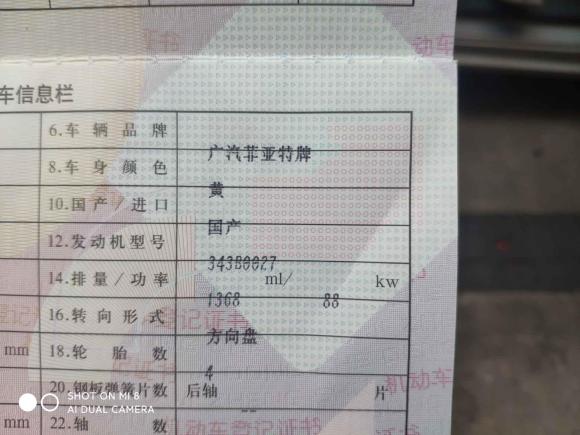 动车
车信息栏
6.车辆品牌
广汽菲亚特牌
8.车身颜色
黄
10.国产/进口
国产
12.发动机型号
34380027
14.排量/功率 ml/ kw
1368 88
16.转向形式
方向盘
mm 18.轮胎数
4
20.钢板弹簧片数 后轴 片
mm 22.轴数
登记证书
机动车
动车登记证书
SHOT ON MI 8
AI DUAL CAMERA